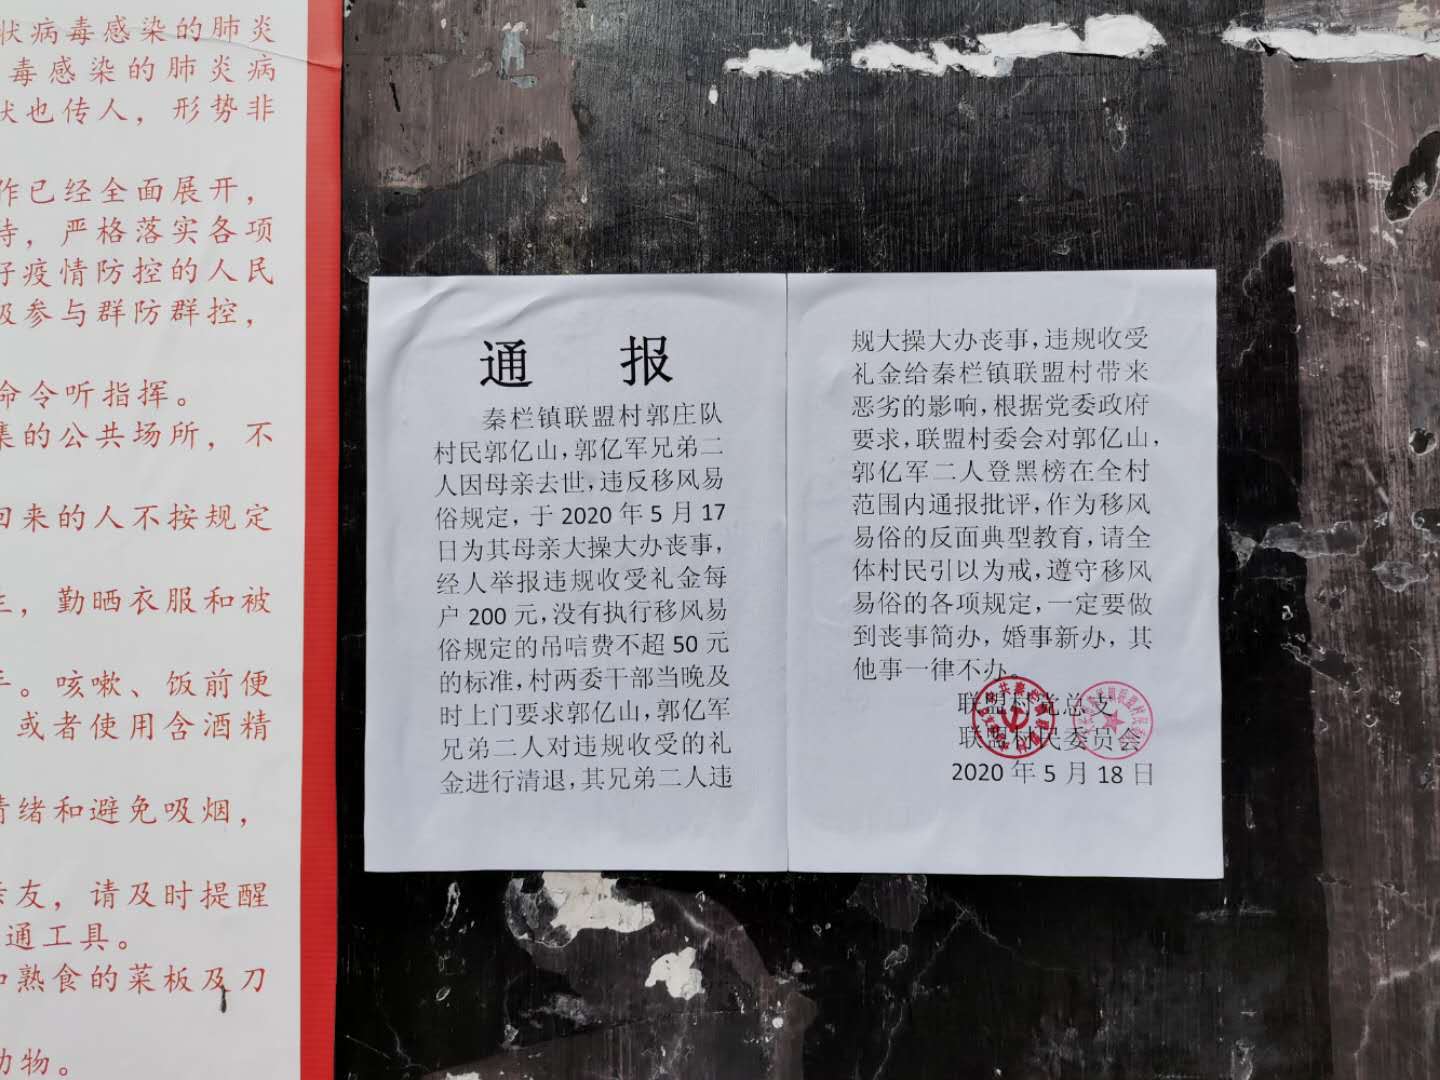 状病毒感染的肺炎
毒感染的肺炎病
状也传人，形势非
作已经全面展开，
持，严格落实各项
好疫情防控的人民
极参与群防群控，
命令听指挥。
集的公共场所，不
回来的人不按规定
生，勤晒衣服和被
手。咳嗽、饭前便
或者使用含酒精
情绪和避免吸烟，
亲友，请及时提醒
通工具。
和熟食的菜板及刀
动物。
通 报
秦栏镇联盟村郭庄队
村民郭亿山，郭亿军兄弟二
人因母亲去世，违反移风易
俗规定，于2020年5月17
日为其母亲大操大办丧事，
经人举报违规收受礼金每
户200元，没有执行移风易
俗规定的吊唁费不超50元
的标准，村两委干部当晚及
时上门要求郭亿山，郭亿军
兄弟二人对违规收受的礼
金进行清退，其兄弟二人违
规大操大办丧事，违规收受
礼金给秦栏镇联盟村带来
恶劣的影响，根据党委政府
要求，联盟村委会对郭亿山，
郭亿军二人登黑榜在全村
范围内通报批评，作为移风
易俗的反面典型教育，请全
体村民引以为戒，遵守移风
易俗的各项规定，一定要做
到丧事简办，婚事新办，其
他事一律不办。
联盟村党总支
联盟村民委员会
2020年5月18日